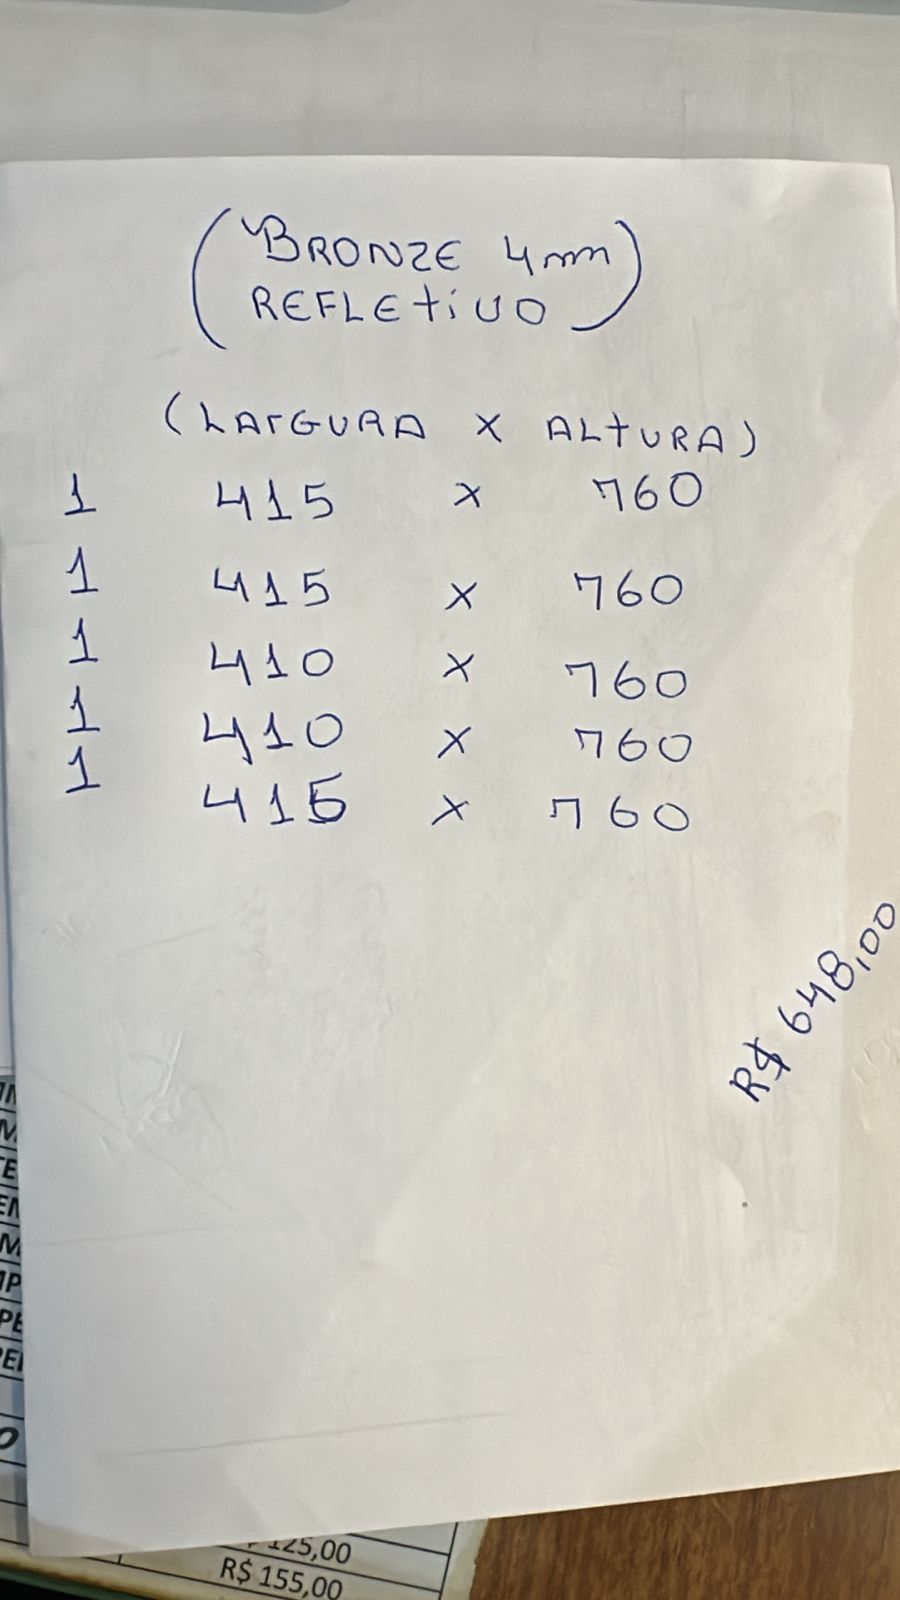 (BRONZE 4mm
REFLETIVO)
(LARGURA X ALTURA)
1 415 x 760
1 415 x 760
1 410 x 760
1 410 x 760
1 415 x 760
R$ 648,00
125,00
R$ 155,00